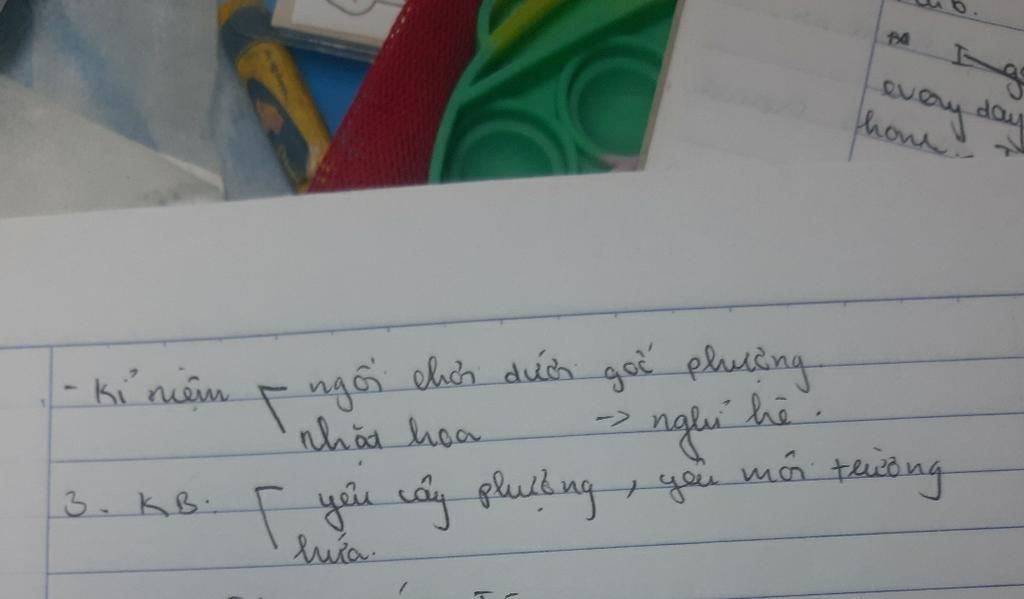 every day
home..
- Kỉ niệm ngồi chơi dưới gốc phượng
nhặt hoa -> nghỉ hè.
3. KB: yêu cây phượng, yêu môi trường
hứa.